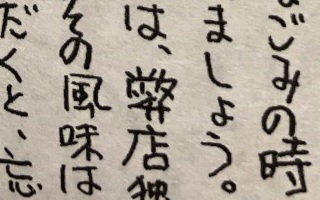 ごみの時
ましょう。
は、弊店独
その風味は
だくと、忘